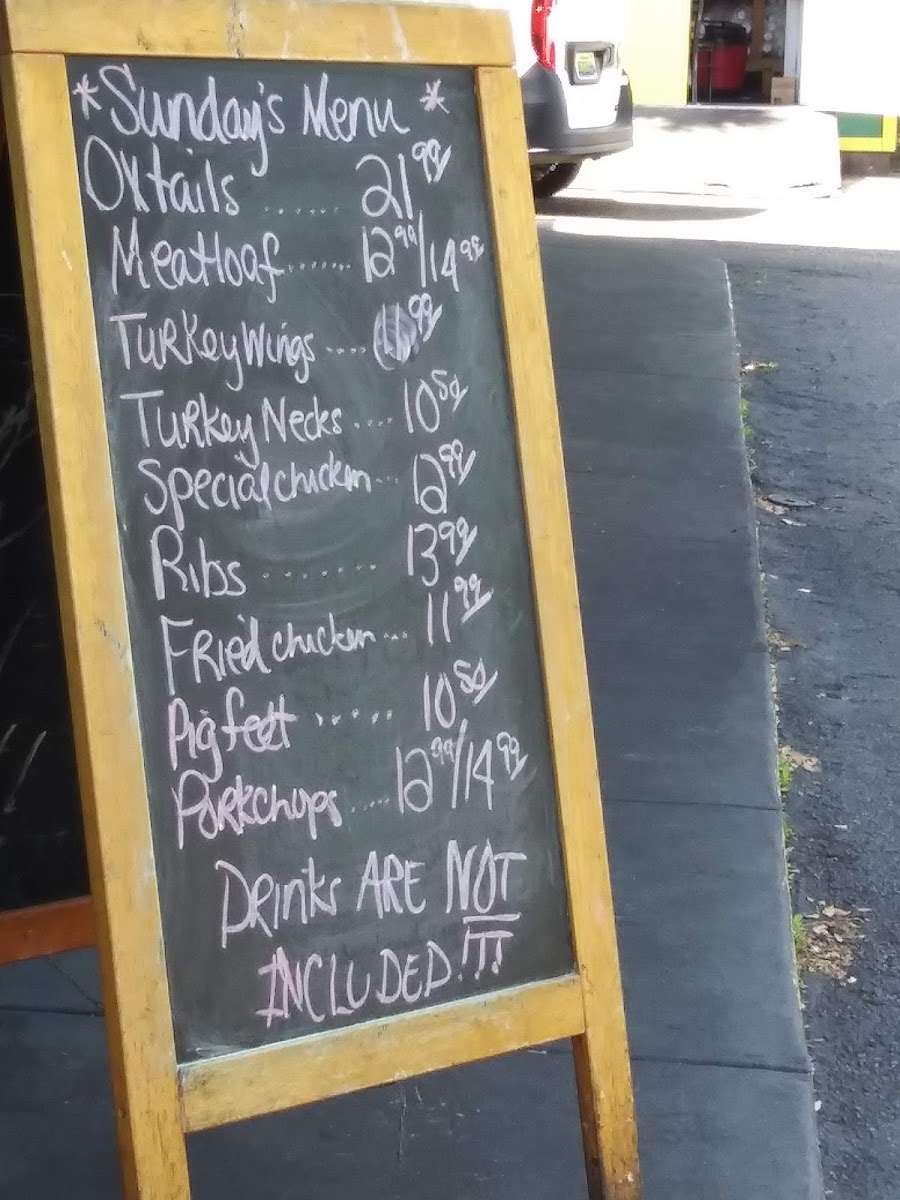 * Sunday's Menu *
Oxtails ...... 21.99
Meatloaf ...... 12.99/14.99
Turkey Wings .... .99
Turkey Necks .... 10.50
Special chicken ... 12.99
Ribs ........ 13.99
Fried chicken ... 11.99
Pig feet ..... 10.50
Porkchops .... 12.99/14.99
DRinks ARE NOT
INCLUDED!!!